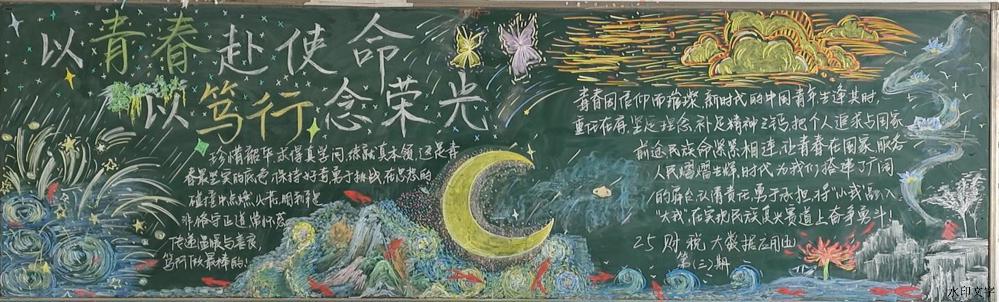 以青春赴使命
以笃行念荣光
珍惜韶华求得真学问,练就真本领,这是青
春最坚实的底色,保持好奇勇于挑战在思想的
碰撞中点燃火花,明辨是
非恪守正道常怀感
传递温暖与善良,
笃行做最棒的!
青春因信仰而璀璨,新时代的中国青年生逢其时,
重任在肩,坚定理念,补足精神之钙,把个人追求与国家
前途民族命紧紧相连,让青春在国家服务
人民熠熠生辉,时代为我们搭建了广阔
的舞台,认清责任,勇于承担,将“小我”融入
“大我”,在实现民族复兴赛道上奋勇争斗!
25财税大数据应用
第(三)期
水印文字